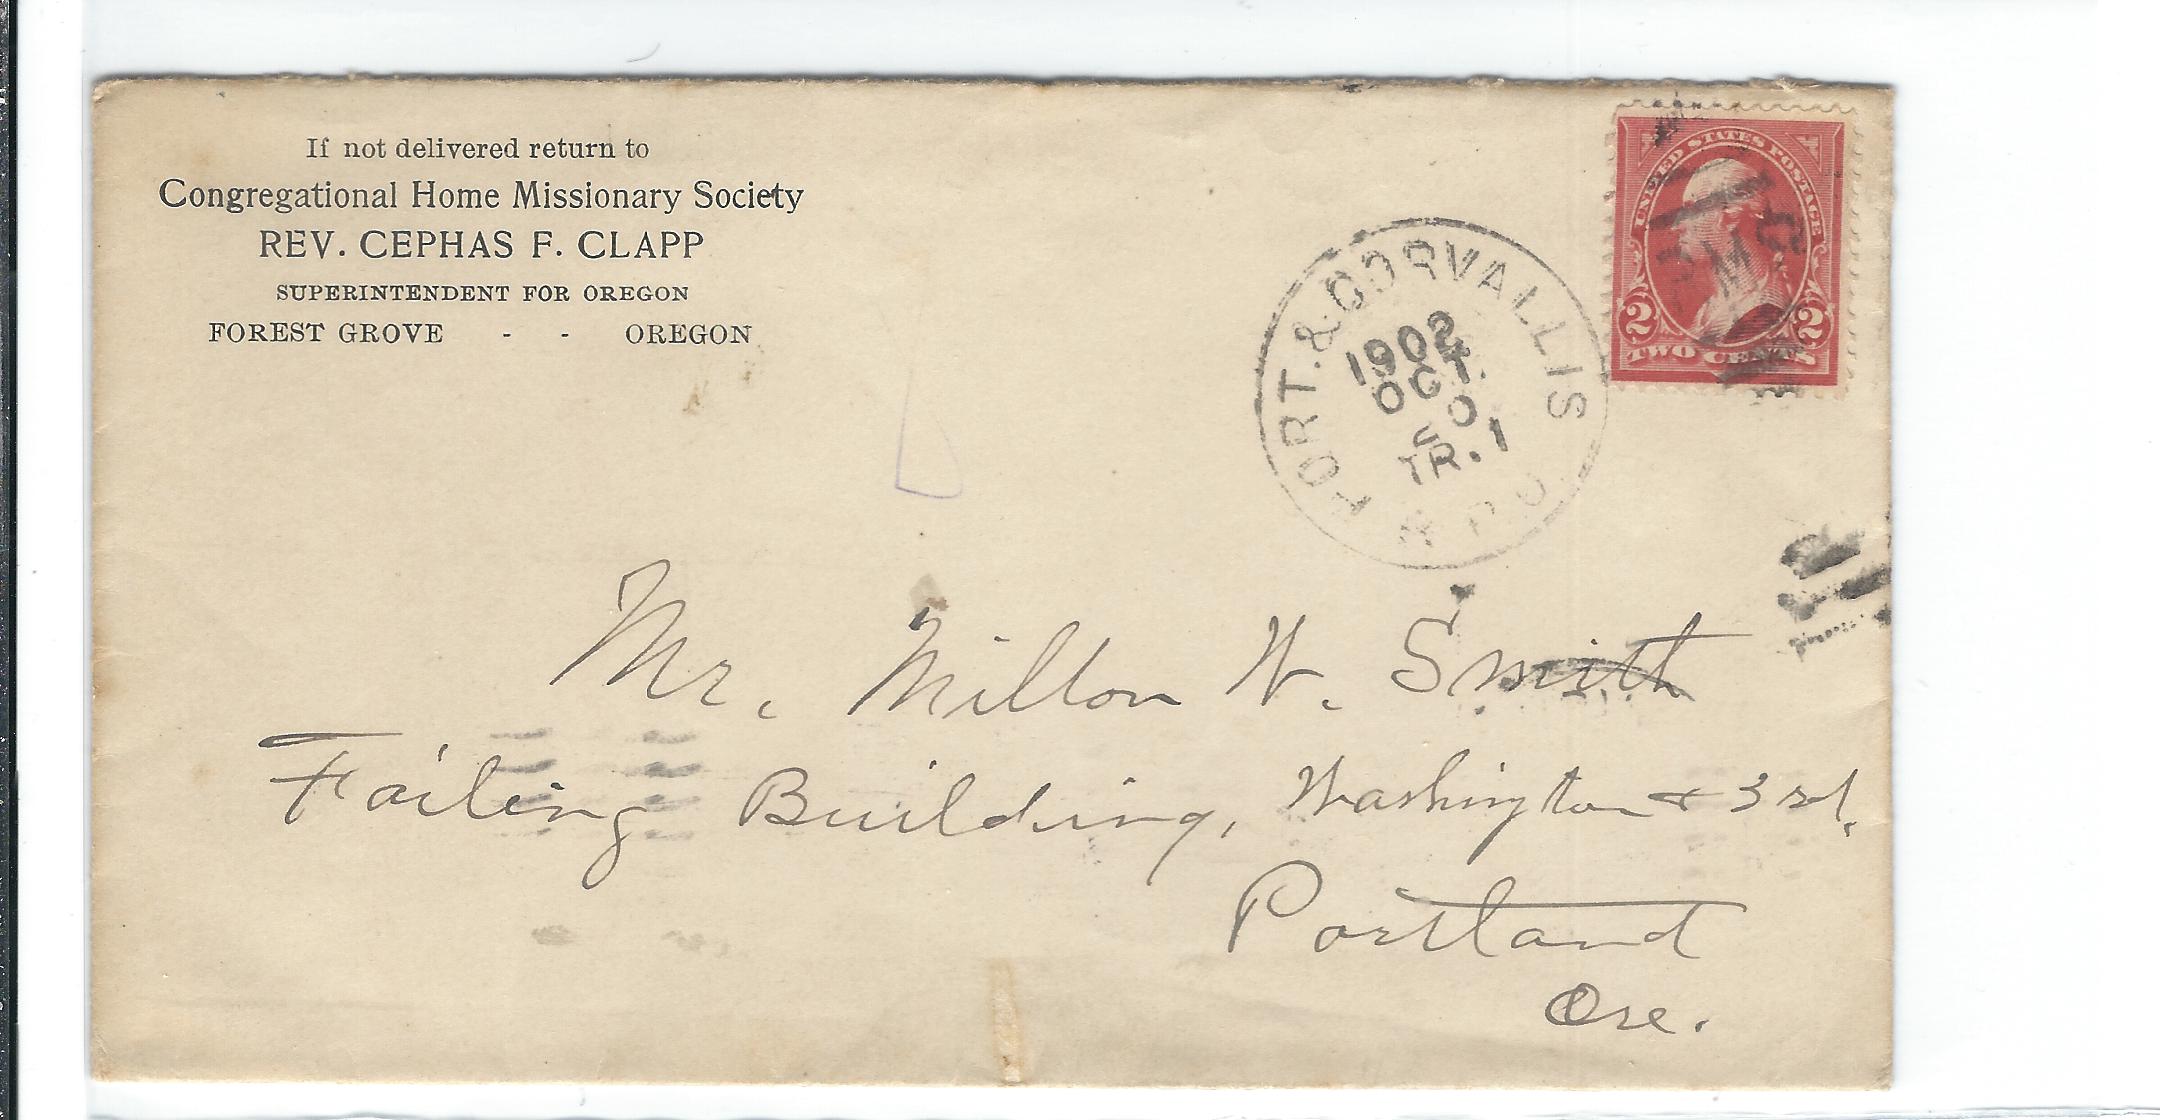 If not delivered return to
Congregational Home Missionary Society
REV. CEPHAS F. CLAPP
SUPERINTENDENT FOR OREGON
FOREST GROVE - - OREGON
PORT. & CORVALLIS
1902
OCT.
TR. 1
R P O
UNITED STATES POSTAGE
2 2
TWO CENTS
R M S
Mr. Milton W. Smith
Failing Building, Washington & 3rd,
Portland
Ore.